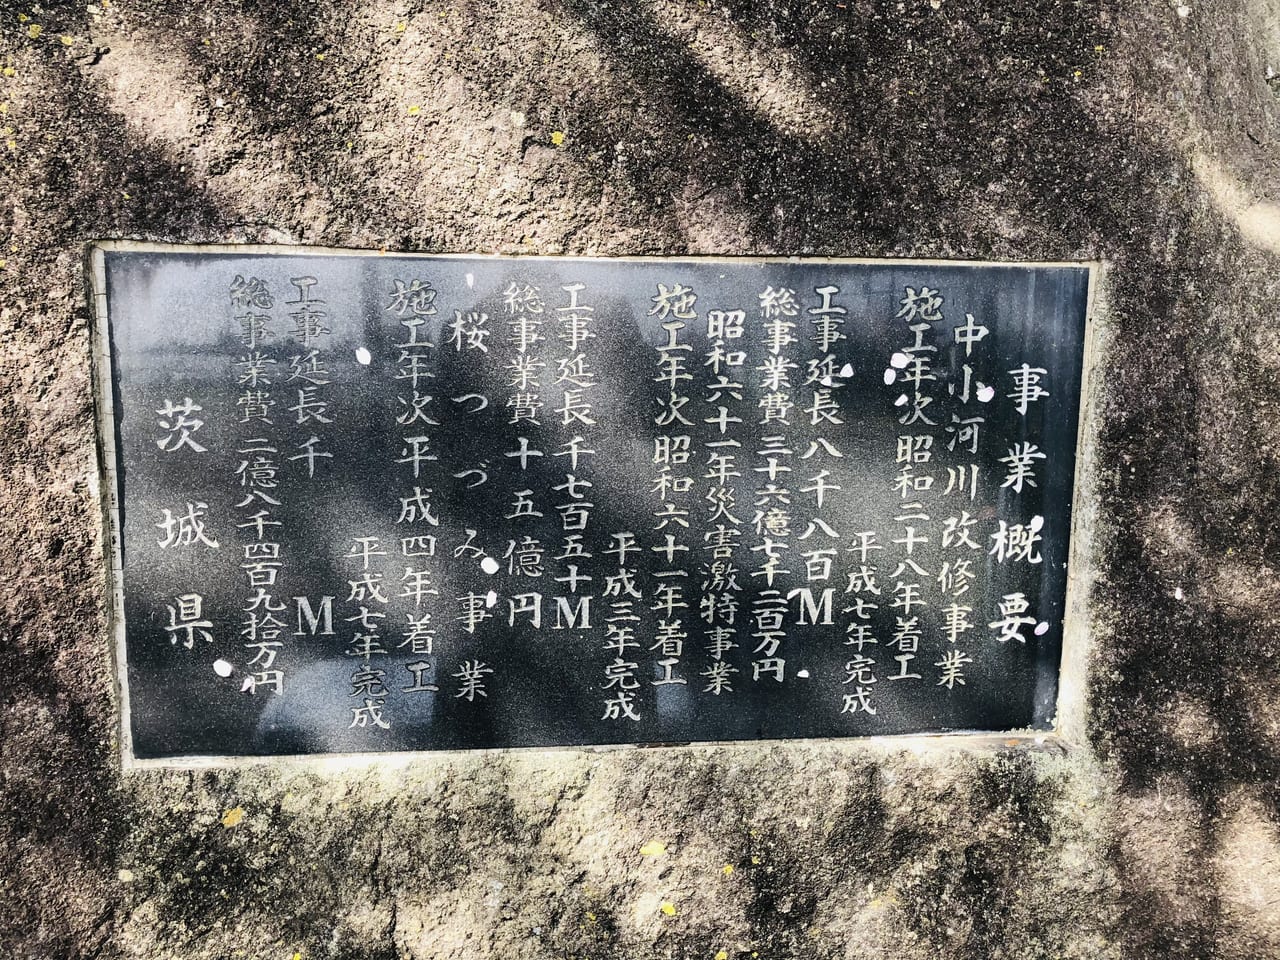 事業概要
中小河川改修事業
施工年次昭和二十八年着工
平成七年完成
工事延長八千八百M
総事業費三十六億七千二百万円
昭和六十一年災害激特事業
施工年次昭和六十一年着工
平成三年完成
工事延長千七百五十M
総事業費十五億円
桜つづみ事業
施工年次平成四年着工
平成七年完成
工事延長千M
総事業費二億八千四百九拾万円
茨城県